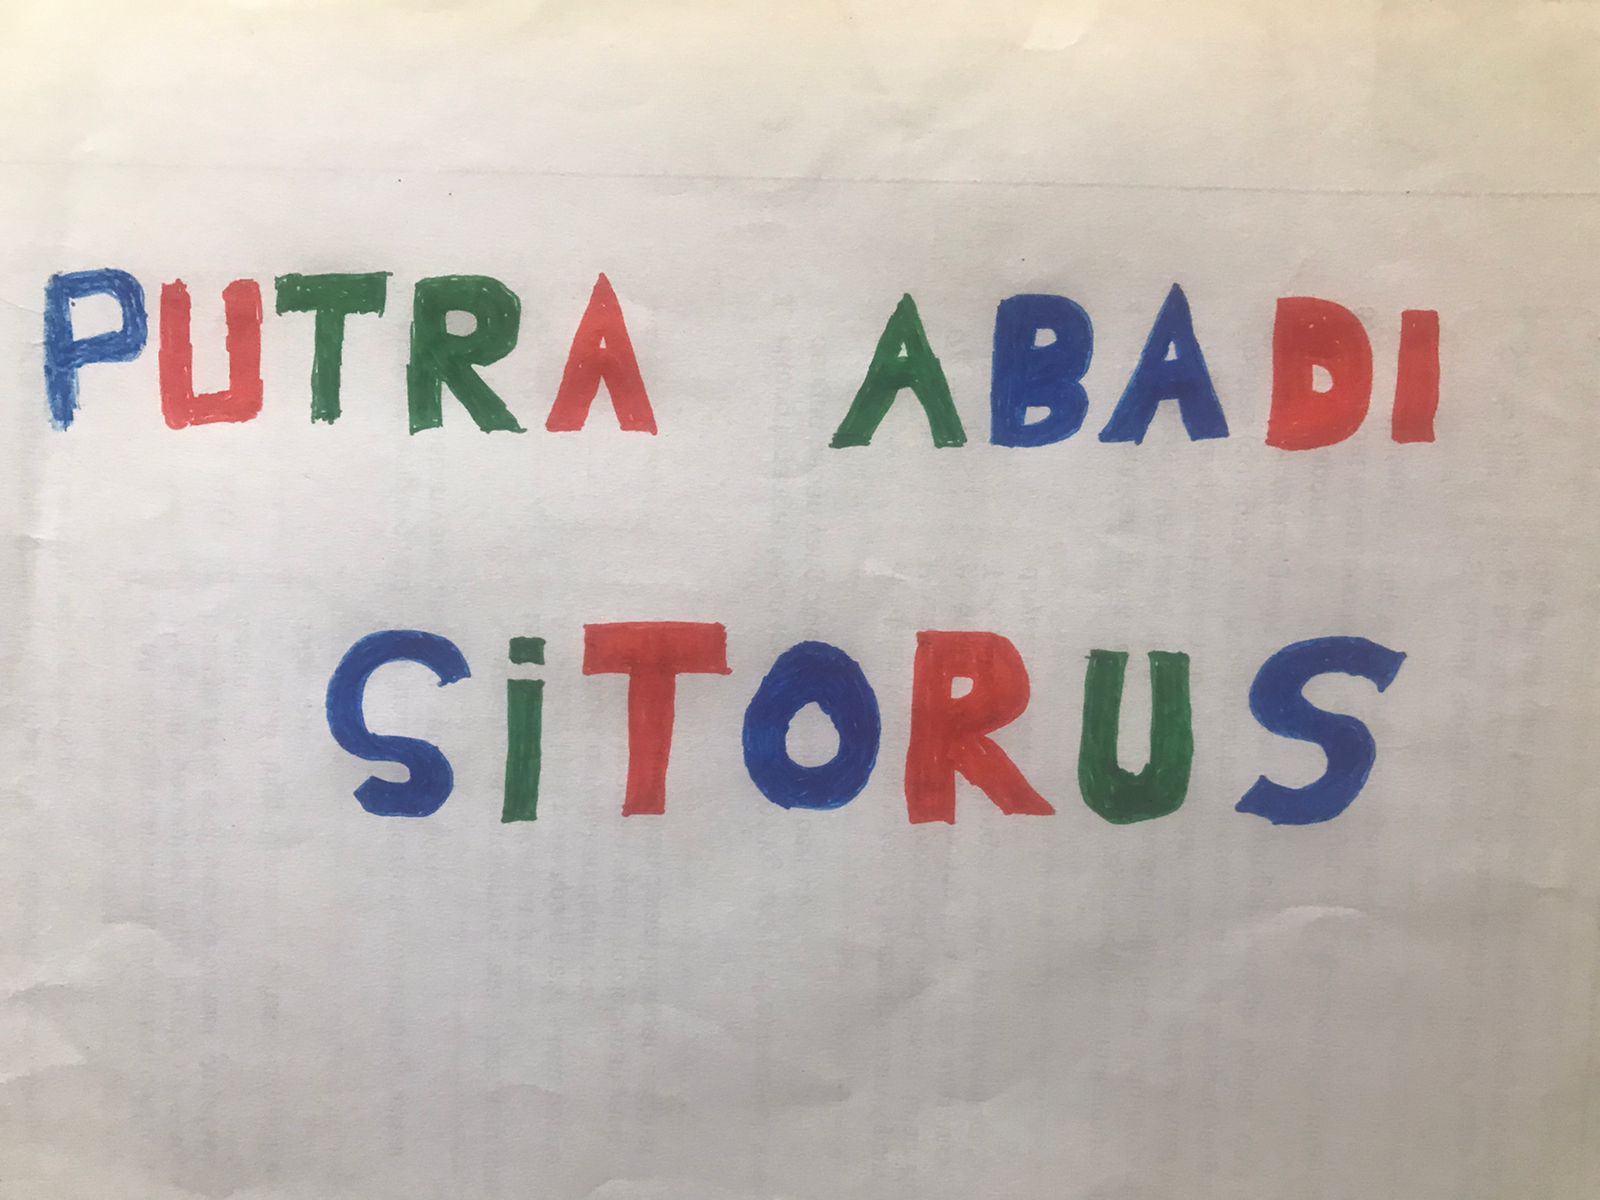 PUTRA ABADI
SiTORUS